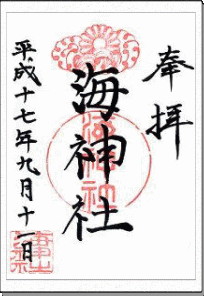 奉拝
海神社
平成十七年九月十一日